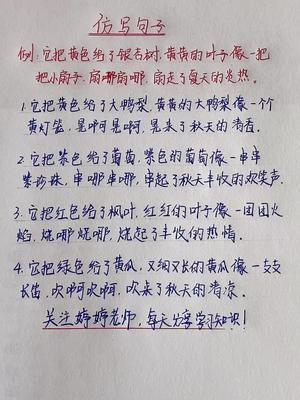 仿写句子
例:它把黄色给了银杏树,黄黄的叶子像一把
把小扇子,扇哪扇哪,扇走了夏天的炎热。
1.它把黄色给了大鸭梨,黄黄的大鸭梨像一个
黄灯笼,晃啊晃啊,晃来了秋天的清香。
2.它把紫色给了葡萄,紫色的葡萄像一串串
紫珍珠,串哪串哪,串起了秋天丰收的欢笑声。
3.它把红色给了枫叶,红红的叶子像一团团火
焰,烧哪烧哪,烧起了丰收的热情。
4.它把绿色给了黄瓜,又细又长的黄瓜像一支支
长笛,吹啊吹啊,吹来了秋天的清凉。
关注婷婷老师,每天分享学习知识!